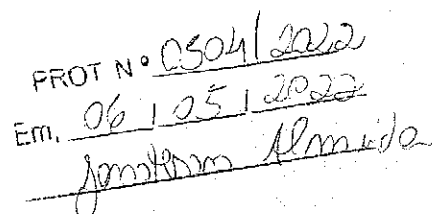 PROT Nº 0504/2022
Em, 06/05/2022
Jonathan Almida